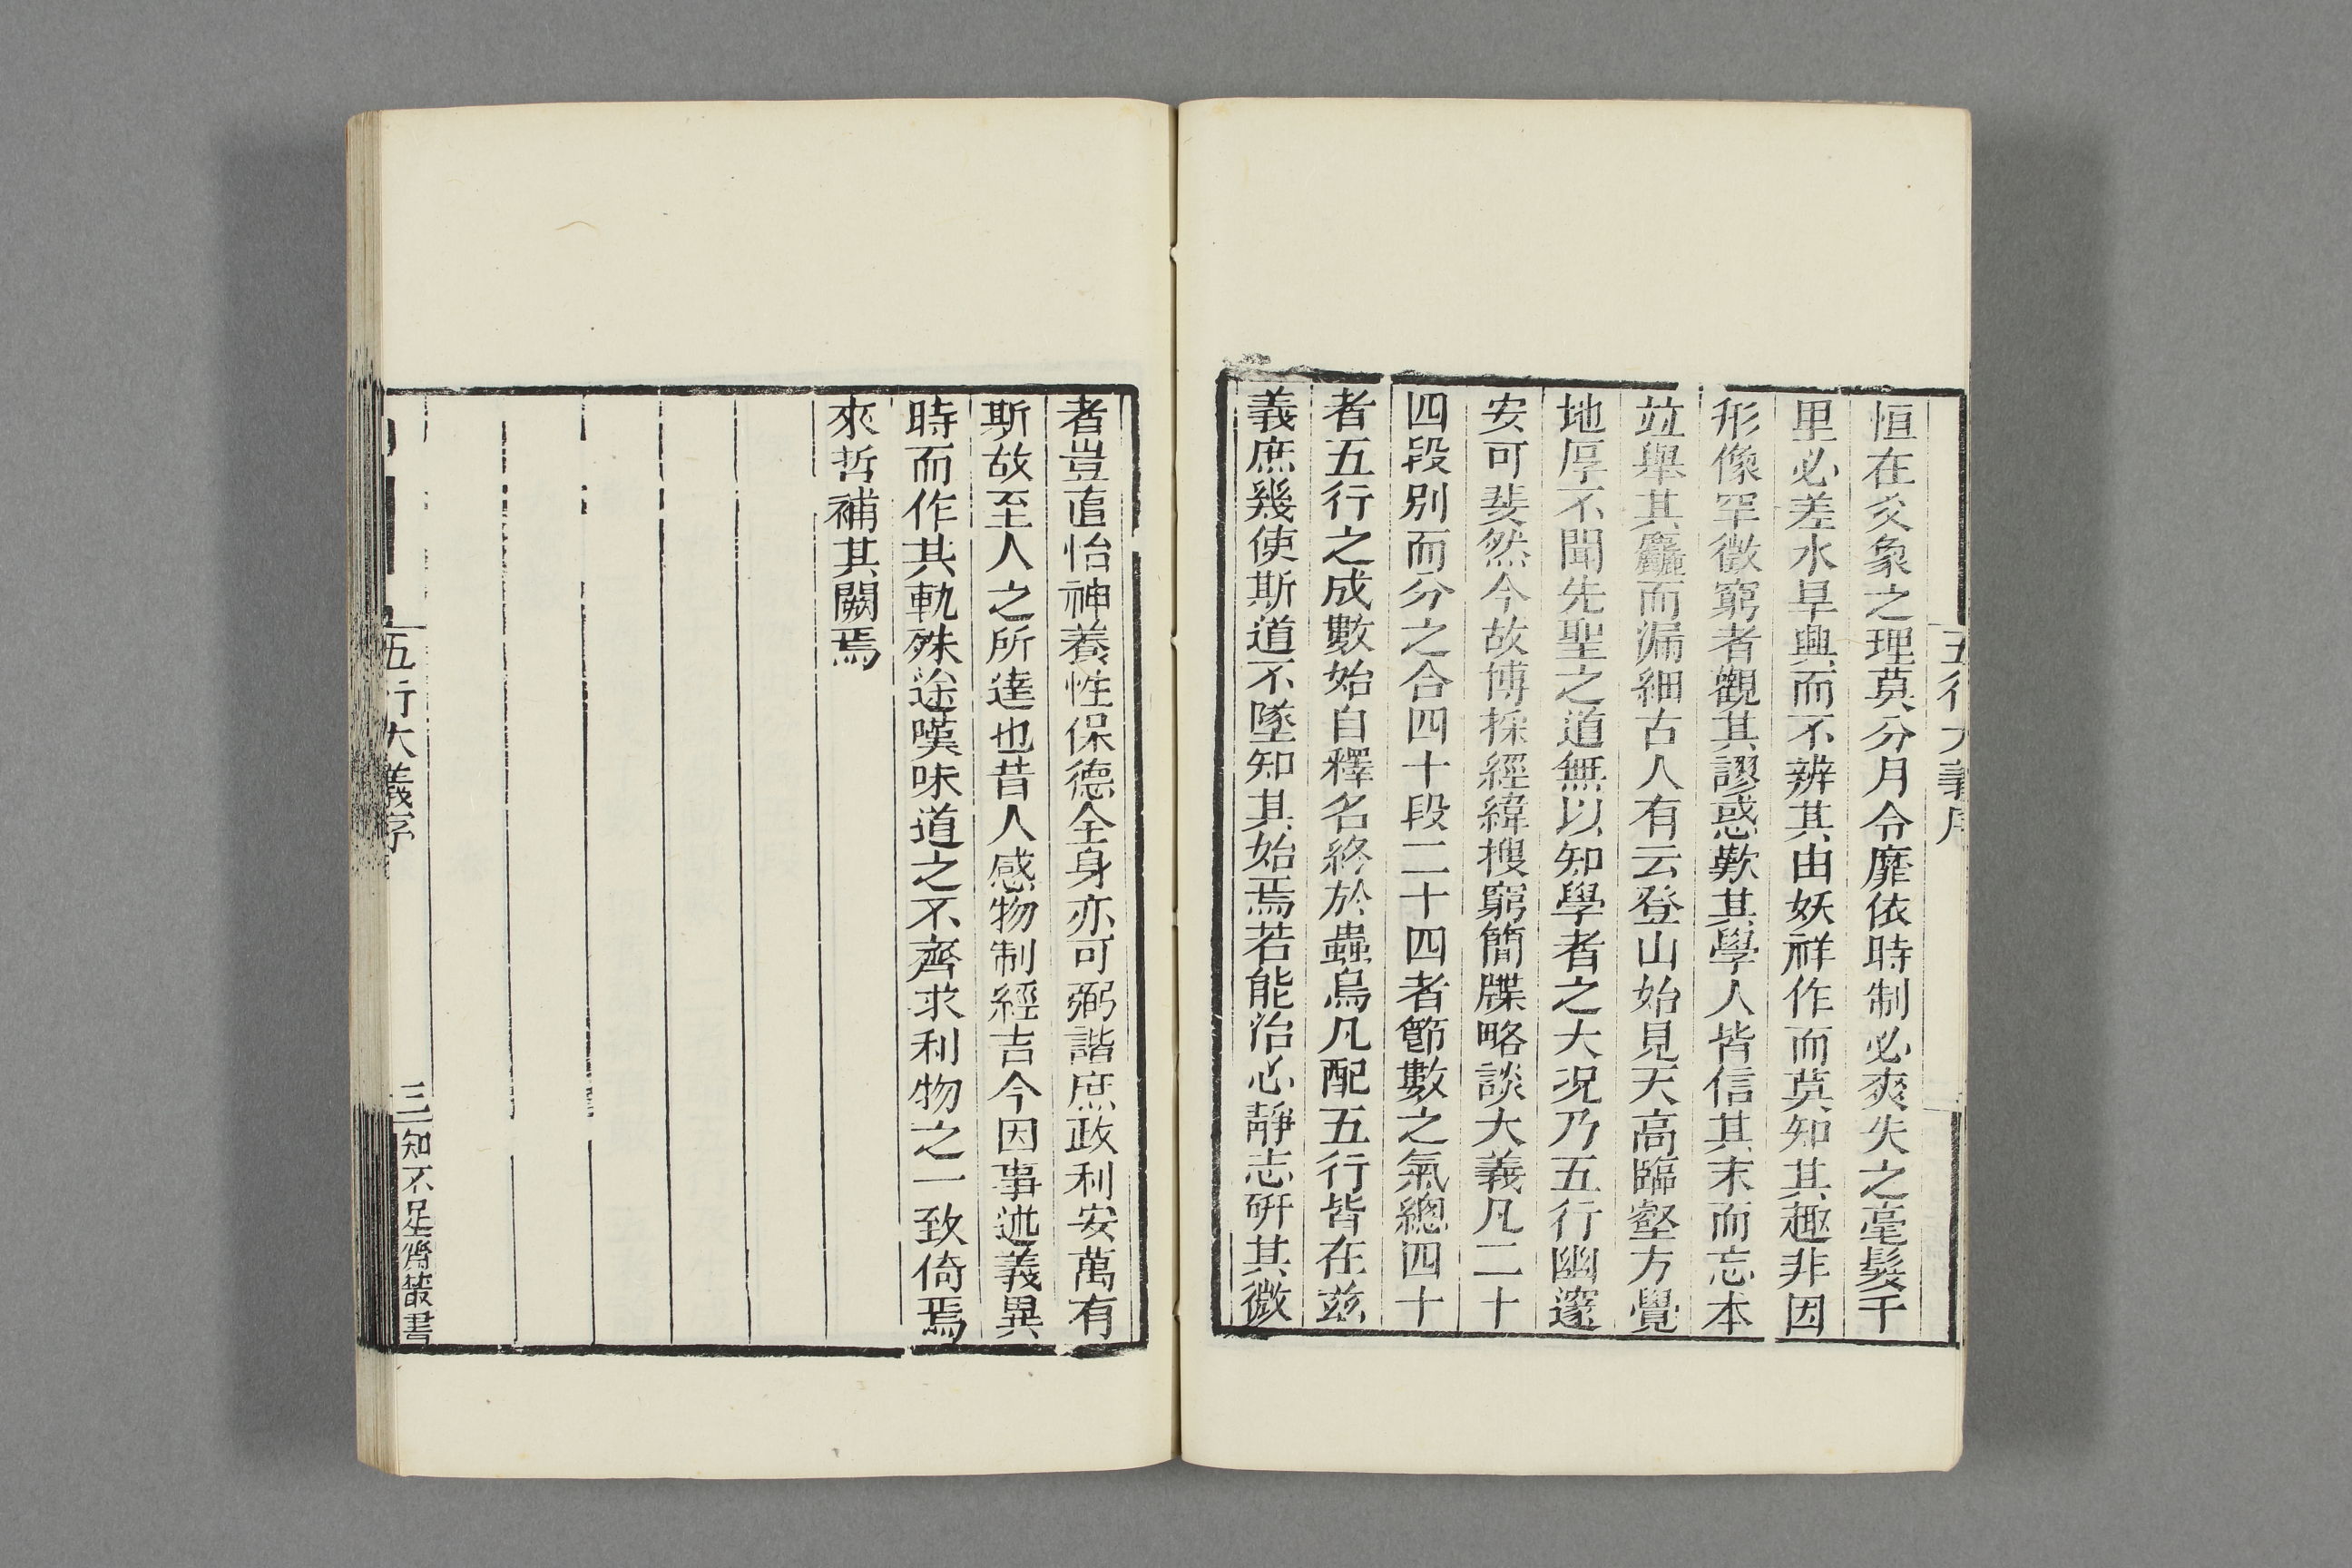 恒在爻象之理莫分月令靡依時制必爽失之毫髮千
里必差水旱興而不辨其由妖祥作而莫知其趣非因
形像罕徵窮者觀其謬惑歎其學人皆信其末而忘本
竝舉其麤而漏細古人有云登山始見天高臨壑方覺
地厚不聞先聖之道無以知學者之大況乃五行幽邃
安可斐然今故博採經緯搜窮簡牒略談大義凡二十
四段別而分之合四十段二十四者節數之氣總四十
者五行之成數始自釋名終於蟲鳥凡配五行皆在茲
義庶幾使斯道不墜知其始焉若能治心靜志研其微
五行大義序
者豈直怡神養性保德全身亦可弼諧庶政利安萬有
斯故至人之所達也昔人感物制經吉今因事述義異
時而作共軌殊途嘆味道之不齊求利物之一致倚焉
來哲補其闕焉
五行大義序
三
知不足齋叢書